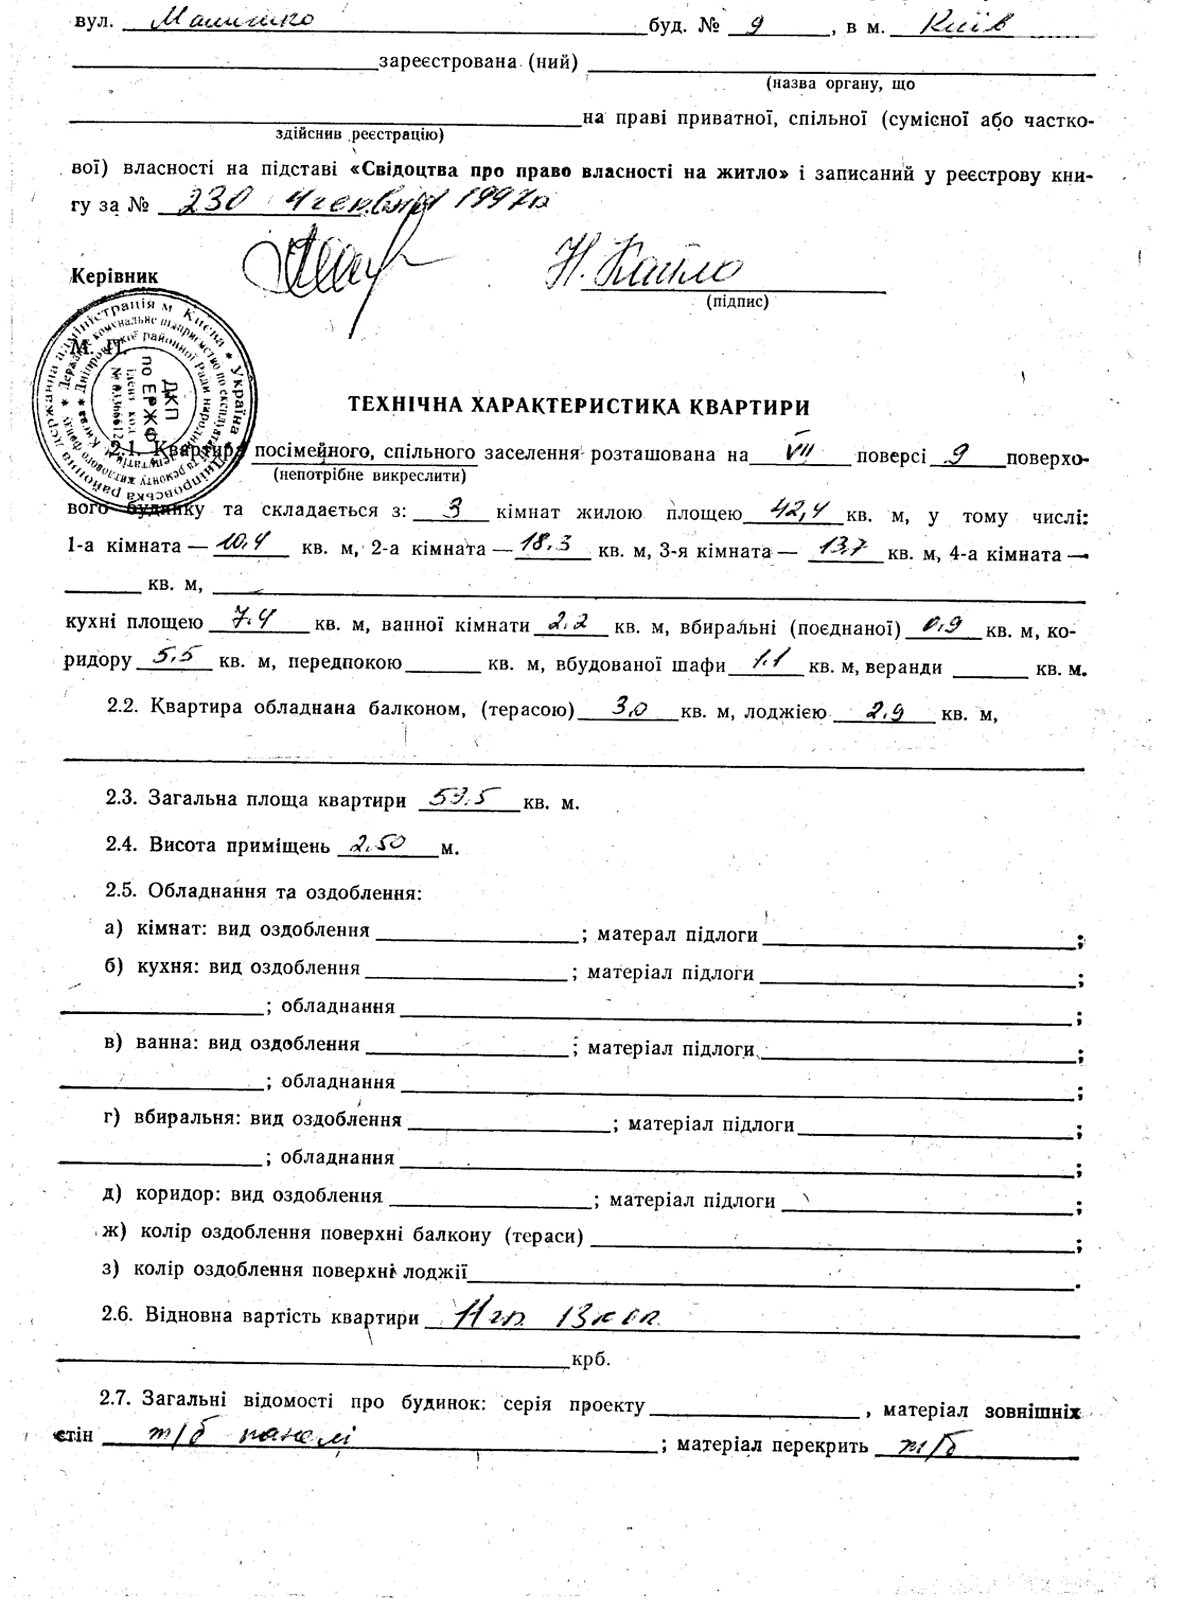 вул. Малишко буд. № 9, в м. Київ
зареєстрована (ний)
(назва органу, що
на праві приватної, спільної (сумісної або частко-
здійснив реєстрацію)
вої) власності на підставі «Свідоцтва про право власності на житло» і записаний у реєстрову кни-
гу за № 230 4 червня 1997р
Керівник
(підпис)
М. П.
Україна * Дніпровська районна державна адміністрація м. Києва *
ДКП
по ЕРЖФ
ТЕХНІЧНА ХАРАКТЕРИСТИКА КВАРТИРИ
2.1. Квартира посімейного, спільного заселення розташована на VII поверсі 9 поверхо-
(непотрібне викреслити)
вого будинку та складається з: 3 кімнат жилою площею 42,4 кв. м, у тому числі:
1-а кімната — 10.4 кв. м, 2-а кімната — 18.3 кв. м, 3-я кімната — 13.7 кв. м, 4-а кімната —
кв. м,
кухні площею 7.4 кв. м, ванної кімнати 2,2 кв. м, вбиральні (поєднаної) 0,9 кв. м, ко-
ридору 5,5 кв. м, передпокою кв. м, вбудованої шафи 1.1 кв. м, веранди кв. м.
2.2. Квартира обладнана балконом, (терасою) 3,0 кв. м, лоджією 2,9 кв. м,
2.3. Загальна площа квартири 59.5 кв. м.
2.4. Висота приміщень 2.50 м.
2.5. Обладнання та оздоблення:
а) кімнат: вид оздоблення ; матерал підлоги ;
б) кухня: вид оздоблення ; матеріал підлоги ;
; обладнання ;
в) ванна: вид оздоблення ; матеріал підлоги ;
; обладнання ;
г) вбиральня: вид оздоблення ; матеріал підлоги ;
; обладнання ;
д) коридор: вид оздоблення ; матеріал підлоги ;
ж) колір оздоблення поверхні балкону (тераси) ;
з) колір оздоблення поверхні лоджії .
2.6. Відновна вартість квартири 11 гр. 13 коп.
крб.
2.7. Загальні відомості про будинок: серія проекту , матеріал зовнішніх
стін з/б панелі ; матеріал перекрить з/б